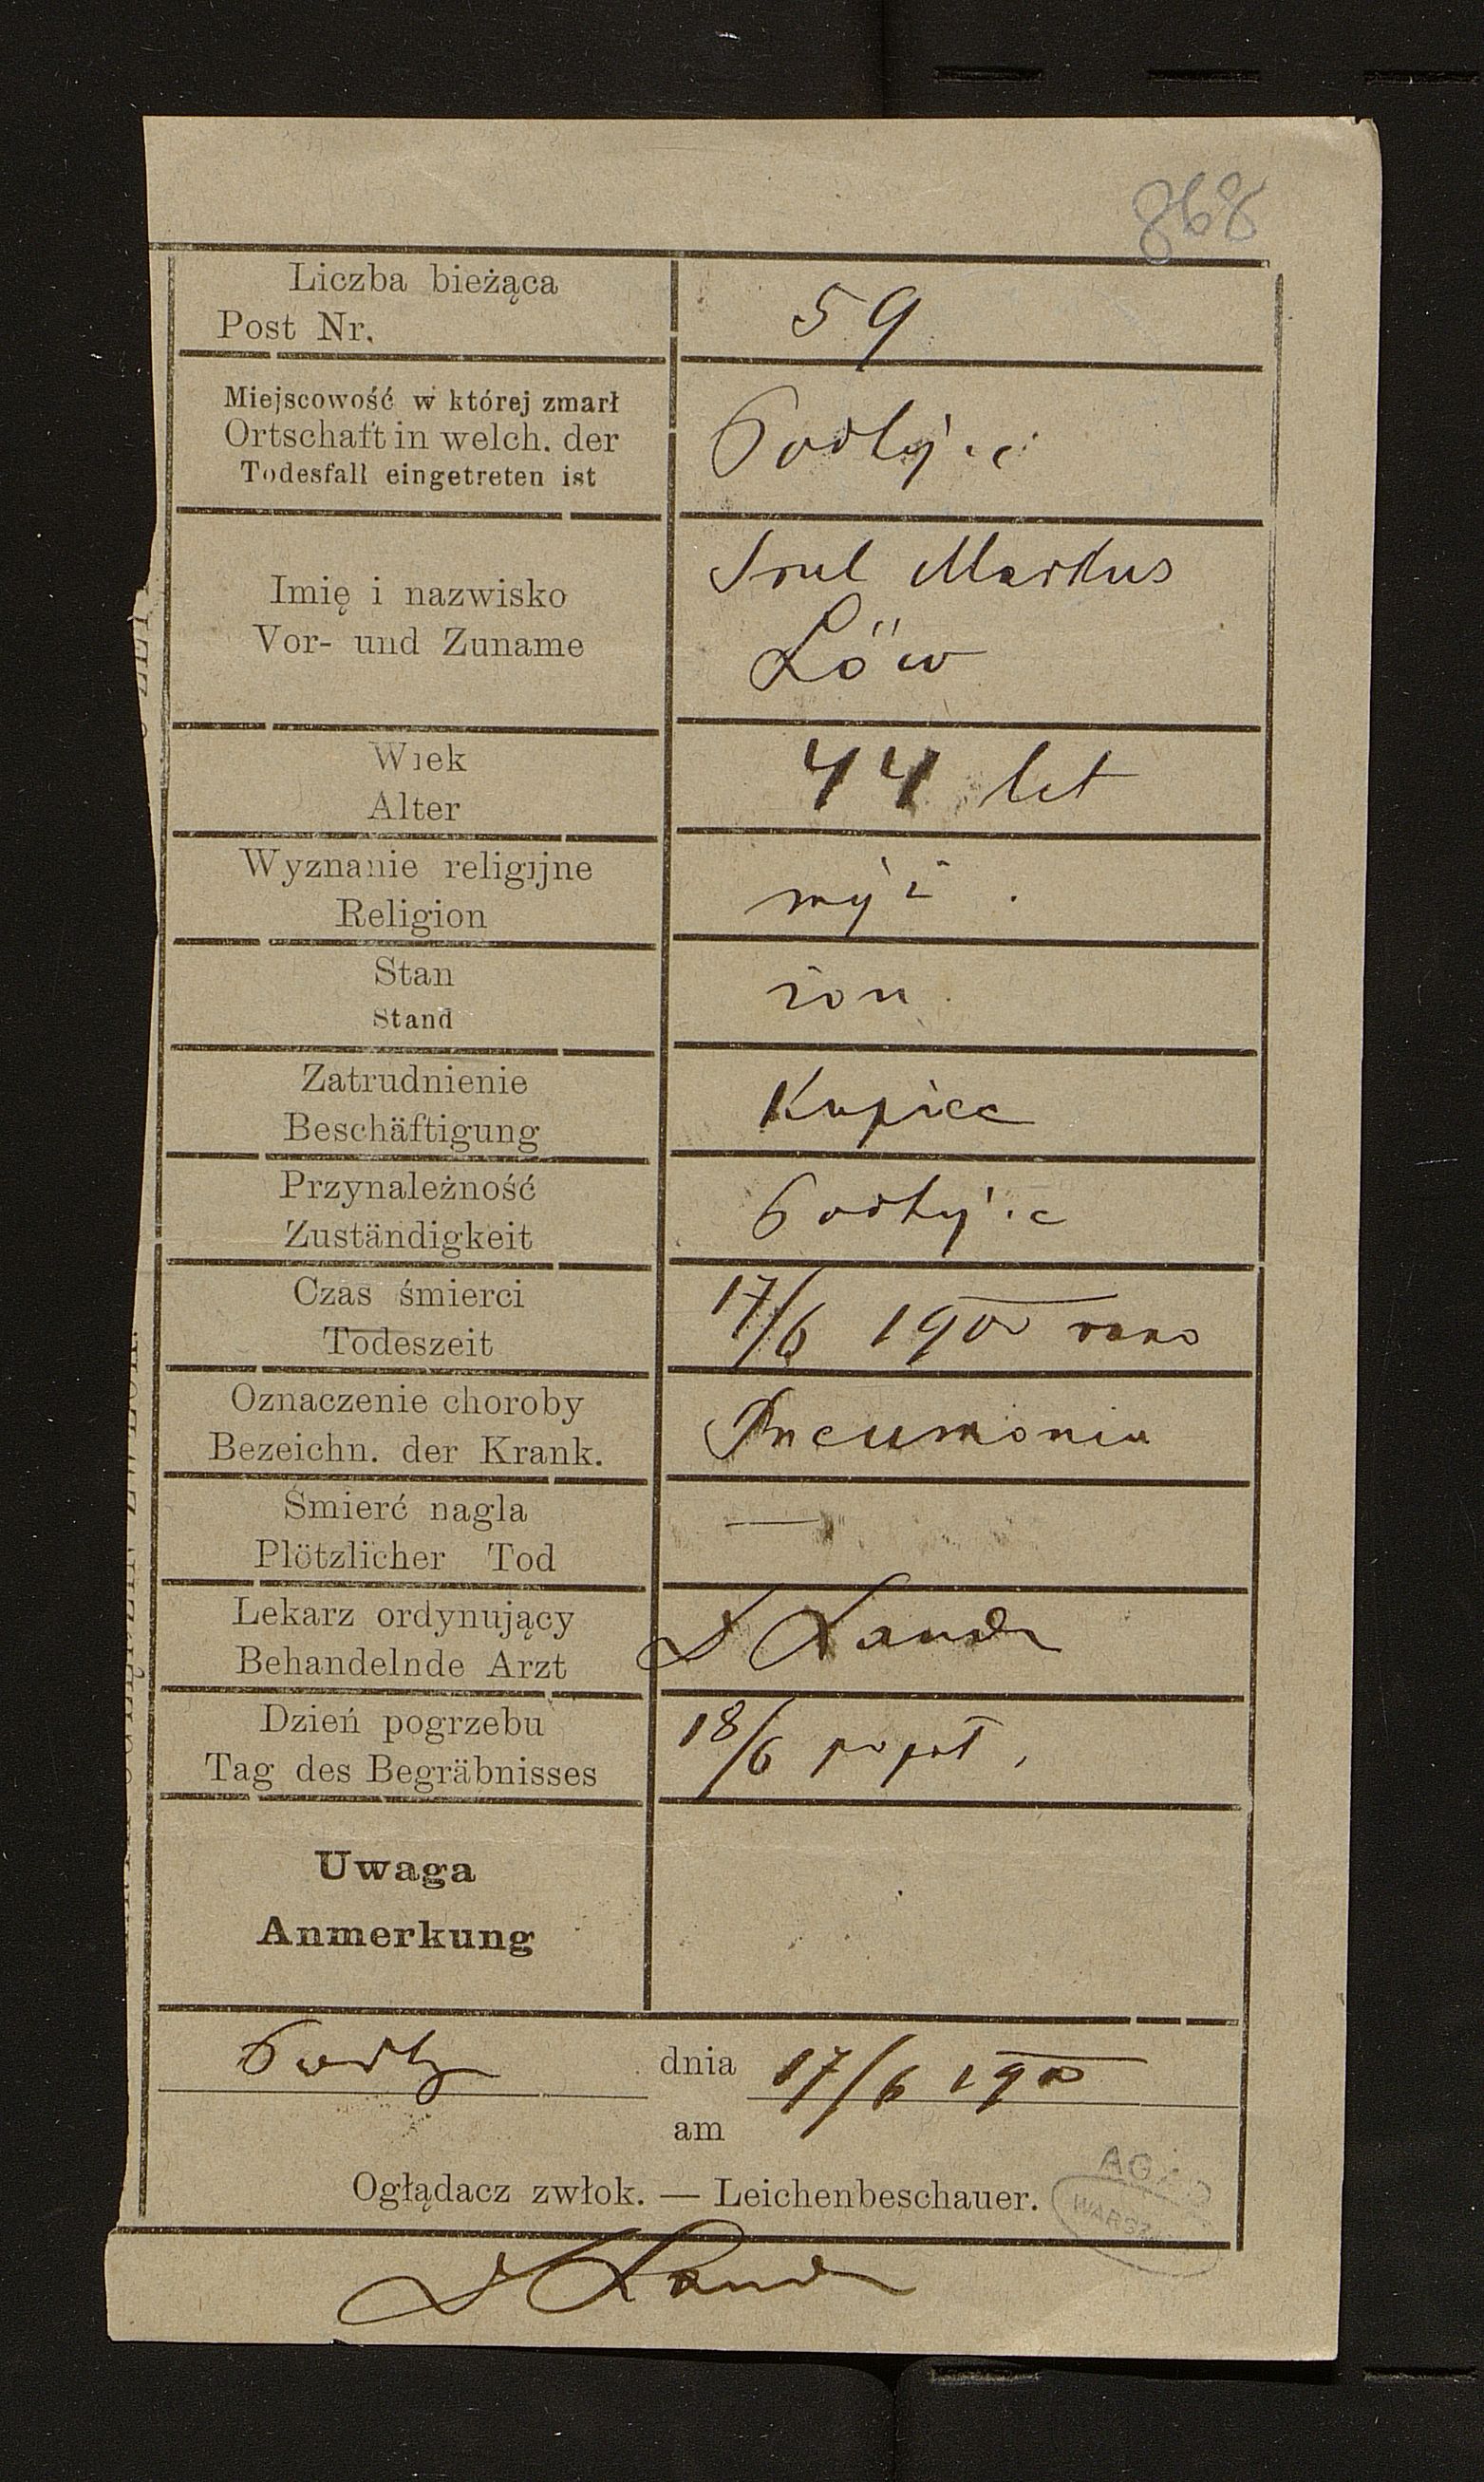 868
Liczba bieżąca
Post Nr.
59
Miejscowość w której zmarł
Ortschaft in welch. der
Todesfall eingetreten ist
Imię i nazwisko
Vor- und Zuname
Srul Markus
Löw
Wiek
Alter
44 let
Wyznanie religijne
Religion
Stan
Stand
żon
Zatrudnienie
Beschäftigung
Kupiec
Przynależność
Zuständigkeit
Czas śmierci
Todeszeit
17/6 1900 rano
Oznaczenie choroby
Bezeichn. der Krank.
Pneumonia
Śmierć nagla
Plötzlicher Tod
—
Lekarz ordynujący
Behandelnde Arzt
Dzień pogrzebu
Tag des Begräbnisses
18/6 popoł,
Uwaga
Anmerkung
dnia 17/6 1900
am
Oglądacz zwłok. — Leichenbeschauer.
AGAD
WARSZAWA